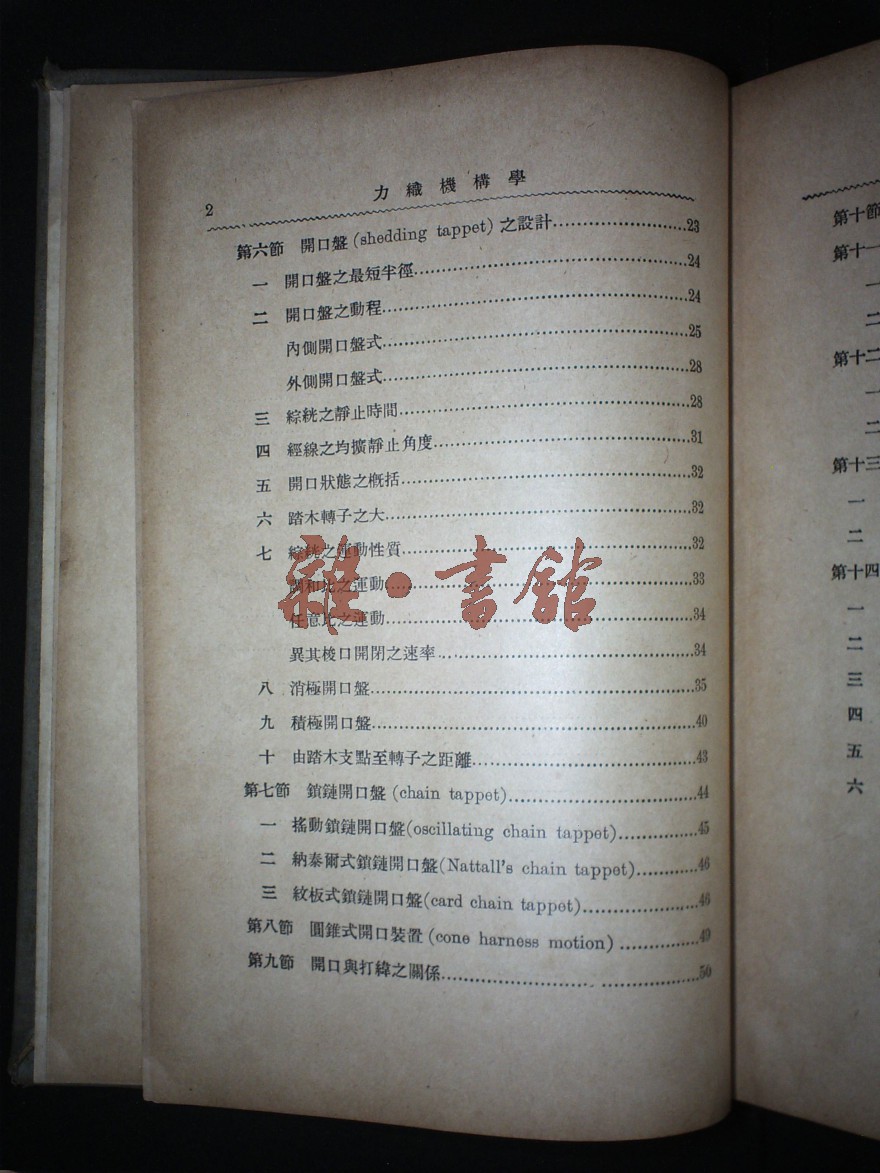 2
力織機構學
第六節 開口盤(shedding tappet)之設計……23
一 開口盤之最短半徑……24
二 開口盤之動程……24
內側開口盤式……25
外側開口盤式……28
三 綜絖之靜止時間……28
四 經線之均擴靜止角度……31
五 開口狀態之概括……32
六 踏木轉子之大……32
七 綜絖之運動性質……32
調和比之運動……33
任意比之運動……34
異其梭口開閉之速率……34
八 消極開口盤……35
九 積極開口盤……40
十 由踏木支點至轉子之距離……43
第七節 鎖鏈開口盤(chain tappet)……44
一 搖動鎖鏈開口盤(oscillating chain tappet)……45
二 納泰爾式鎖鏈開口盤(Nattall's chain tappet)……46
三 紋板式鎖鏈開口盤(card chain tappet)……46
第八節 圓錐式開口裝置(cone harness motion)……49
第九節 開口與打緯之關係……50
雜·書館
第十節
第十一
一
二
第十二
一
二
第十三
一
二
第十四
一
二
三
四
五
六